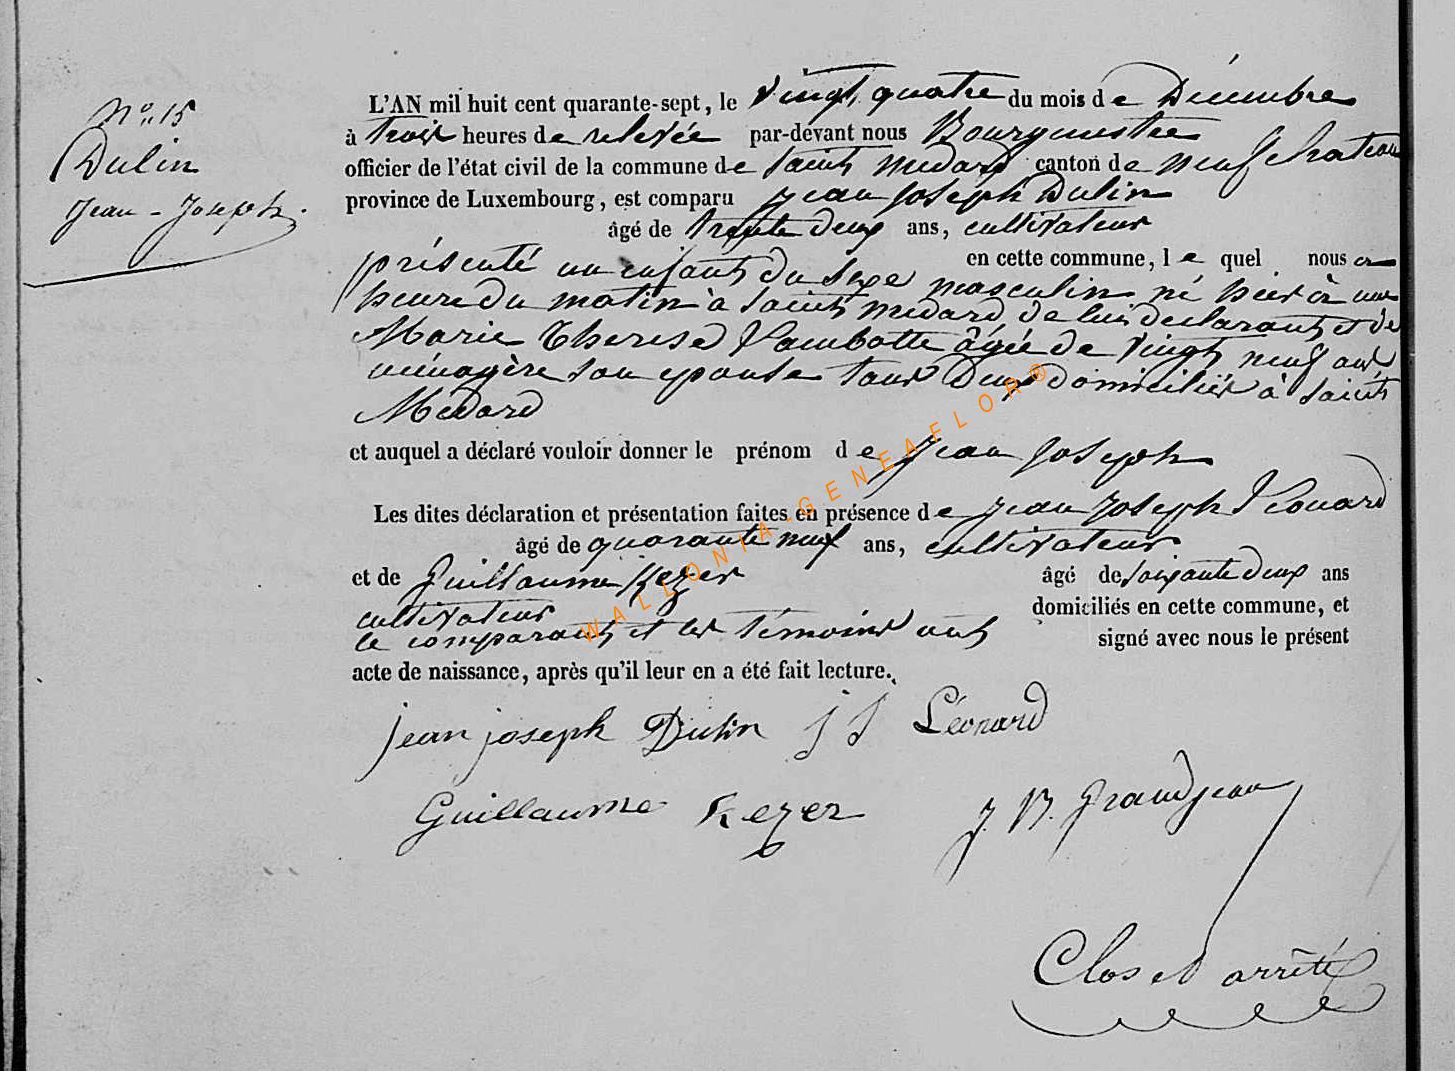 N° 15
Dulin
Jean-Joseph.
L'AN mil huit cent quarante-sept, le vingt quatre du mois de Décembre
à trois heures de relevée par-devant nous Bourgmestre
officier de l'état civil de la commune de Saint Medard canton de Neufchateau
province de Luxembourg, est comparu Jean Joseph Dulin
âgé de trente deux ans, cultivateur
en cette commune, le quel nous a
présenté un enfant du sexe masculin né hier à une
heure du matin à Saint Medard de lui déclarant et de
Marie Therese Lambotte âgée de vingt neuf ans
ménagère son epouse tous deux domiciliés à Saint
Médard
et auquel a déclaré vouloir donner le prénom de Jean Joseph
Les dites déclaration et présentation faites en présence de Jean Joseph Léonard
âgé de quarante neuf ans, cultivateur
et de Guillaume Kezer âgé de soixante deux ans
cultivateur domiciliés en cette commune, et
le comparant et les témoins ont signé avec nous le présent
acte de naissance, après qu'il leur en a été fait lecture.
jean joseph Dulin J J Léonard
Guillaume Kezer J. B. Grandjean
Clos et arrêté
WALLONIA-GENEAFLOR®